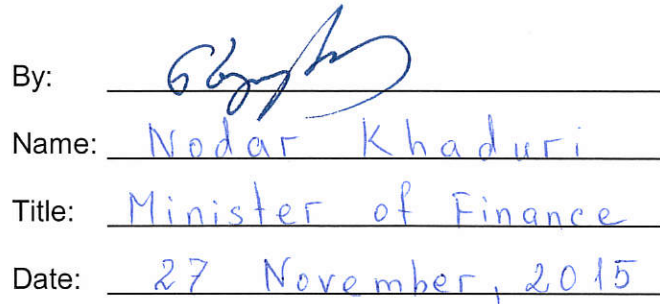 By:
Name: Nodar Khaduri
Title: Minister of Finance
Date: 27 November, 2015